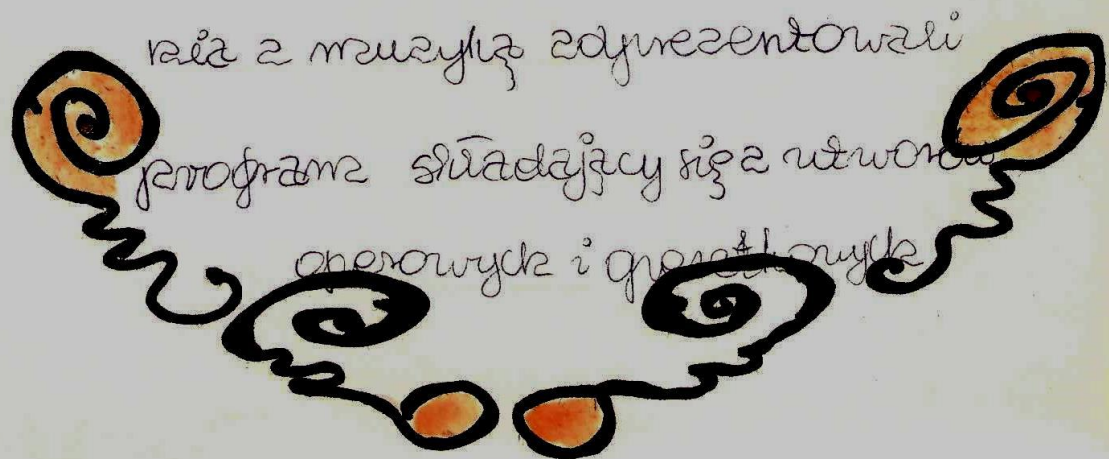 nia z muzyką zaprezentowali
program składający się z utworów
operowych i operetkowych